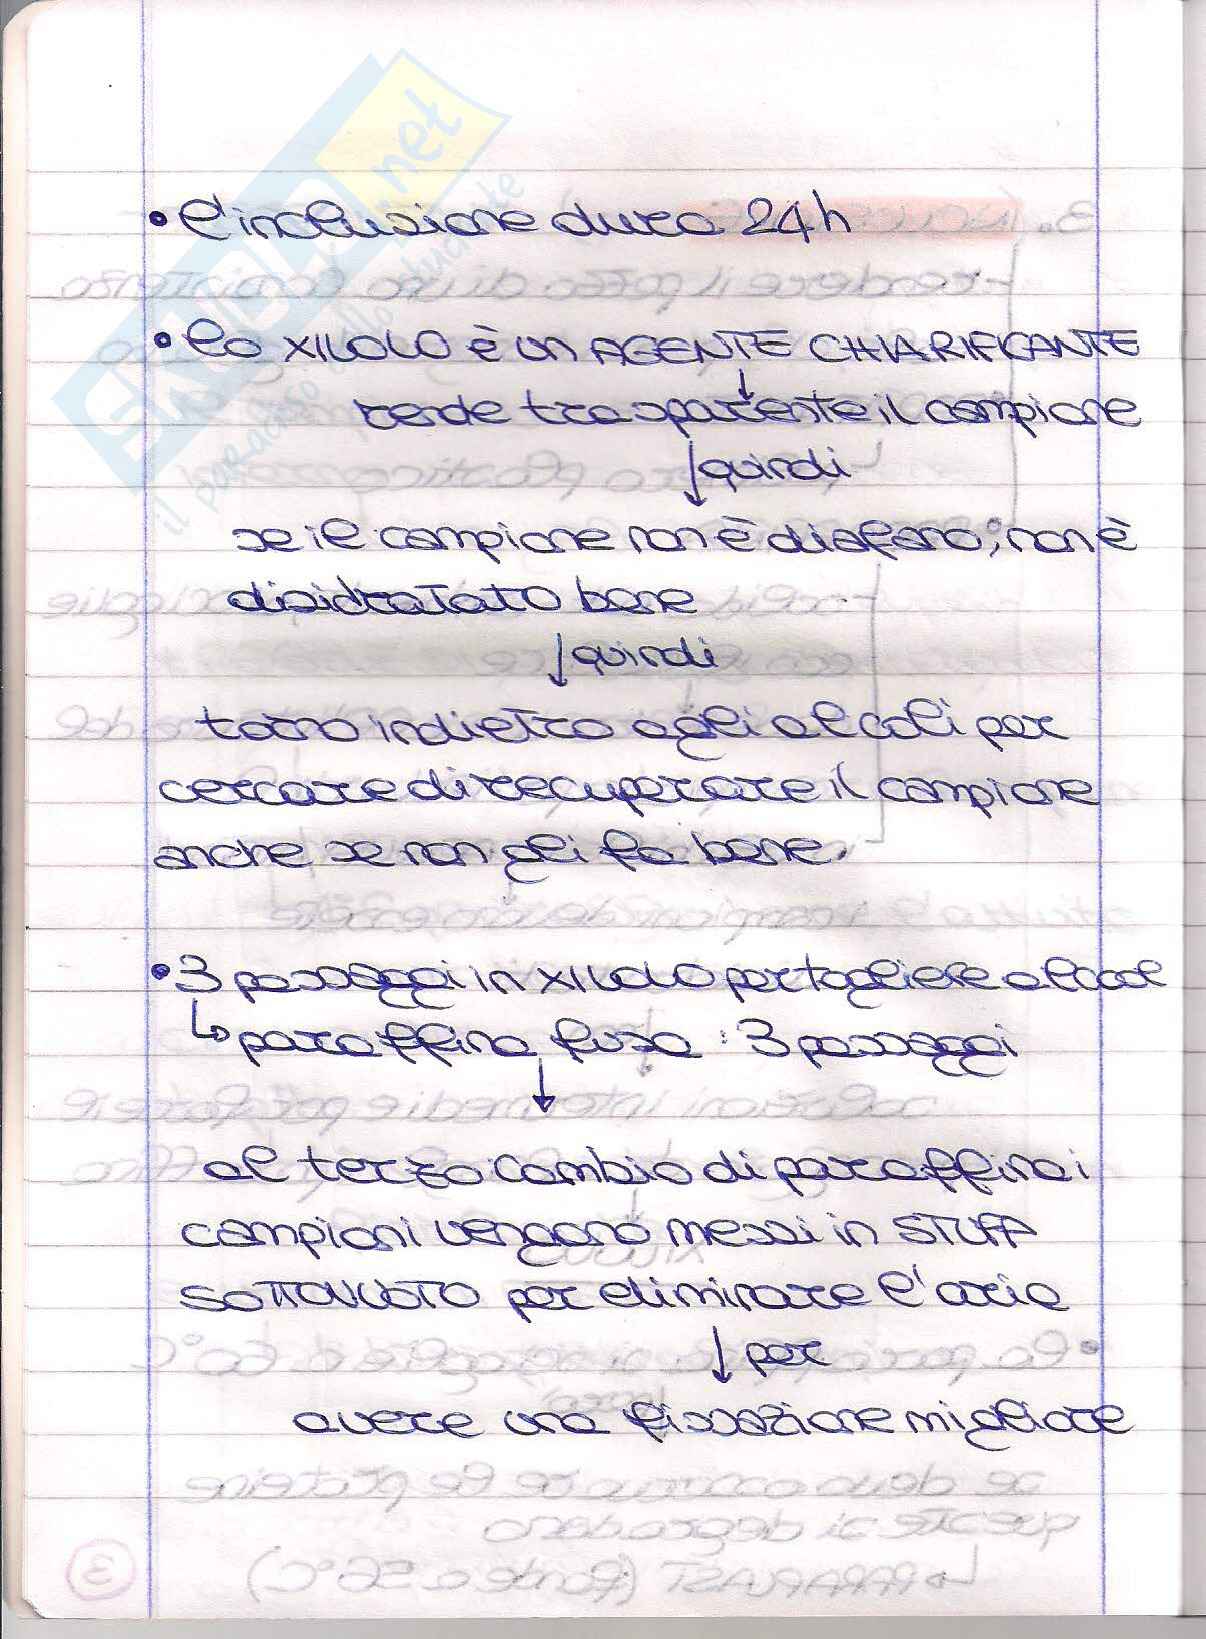 • l'inclusione dura 24h
• lo XILOLO è un AGENTE CHIARIFICANTE
↓
rende trasparente il campione
↓ quindi
se il campione non è diafano, non è
disidratato bene
↓ quindi
torno indietro agli alcoli per
cercare di recuperare il campione
anche se non gli fa bene.
• 3 passaggi in XILOLO per togliere alcool
↳ paraffina fusa : 3 passaggi
↓
al terzo cambio di paraffina i
campioni vengono messi in STUFA
SOTTOVUOTO per eliminare l'aria
↓ per
avere una fissazione migliore
3